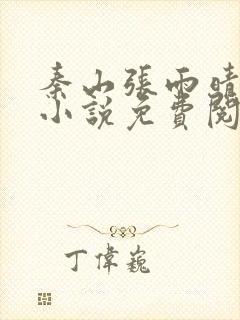 秦山張雨晴
小說免費閱
丁偉巍